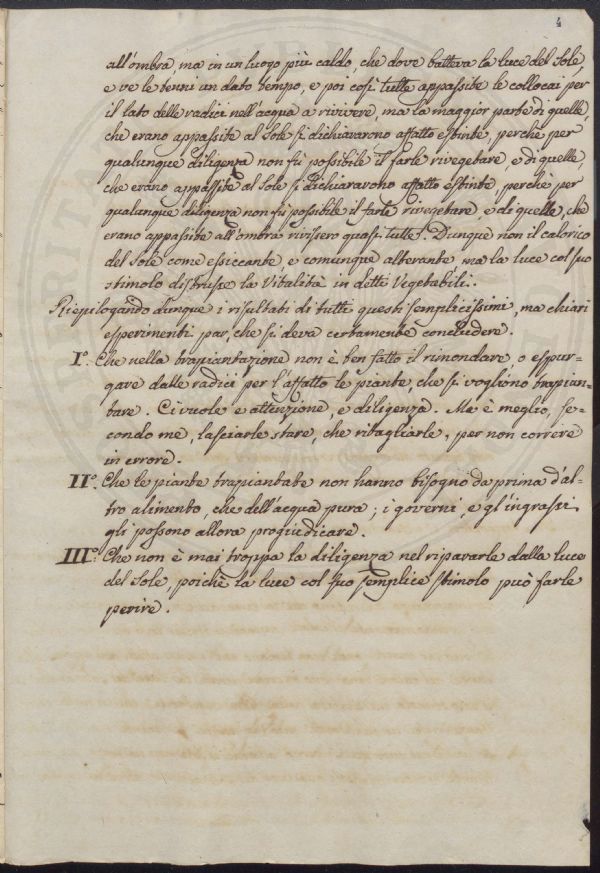 4
all'ombra, ma in un luogo più caldo, che dove batteva la luce del Sole,
e ve le tenni un dato tempo, e poi così tutte appassite le collocai per
il lato delle radici nell'acqua a rivivere, ma la maggior parte di quelle,
che erano appassite al Sole si dichiavarono affatto estinte, perchè per
qualunque diligenza non fù possibile il farle rivegetare, e di quelle,
che erano appassite al Sole si dichiaravono affatto estinte, perchè per
qualunque diligenza non fù possibile il farle rivegetare, e di quelle, che
erano appassite all'ombra rivissero quasi tutte. Dunque non il calorico
del Sole come essiccante, e comunque alterante, ma la luce col suo
stimolo distrusse la Vitalità in detti Vegetabili.
Riepilogando dunque i risultati di tutti questi semplicissimi, ma chiari
esperimenti par, che si deva certamente concludere.
I.° Che nella trapiantazione non è ben fatto il rimondare, o espur=
gare dalle radici per l'affatto le piante, che si vogliono trapian=
tare. Ci vuole e attenzione, e diligenza. Ma è meglio, se=
condo me, lasciarle stare, che ritagliarle, per non correre
in errore.
II.° Che le piante trapiantate non hanno bisogno da prima d'al=
tro alimento, che dell'acqua pura; i governi, e gl'ingrassi
gli possono allora progiudicare.
III.° Che non è mai troppa la diligenza nel ripararle dalla luce
del Sole, poichè la luce col suo semplice stimolo può farle
perire.